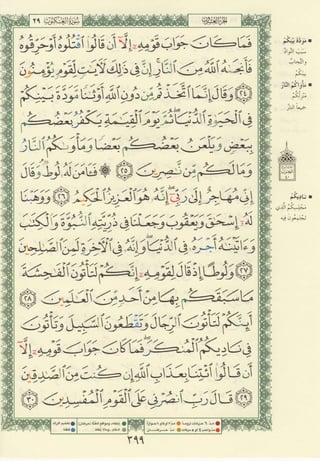 الجزء العشرون
سورة العنكبوت
٢٩
فَمَا كَانَ جَوَابَ قَوْمِهِۦٓ إِلَّآ أَن قَالُوا۟ ٱقْتُلُوهُ أَوْ حَرِّقُوهُ
فَأَنجَىٰهُ ٱللَّهُ مِنَ ٱلنَّارِ إِنَّ فِى ذَٰلِكَ لَءَايَٰتٍ لِّقَوْمٍ يُؤْمِنُونَ
٢٤ وَقَالَ إِنَّمَا ٱتَّخَذْتُم مِّن دُونِ ٱللَّهِ أَوْثَٰنًا مَّوَدَّةَ بَيْنِكُمْ
فِى ٱلْحَيَوٰةِ ٱلدُّنْيَا ثُمَّ يَوْمَ ٱلْقِيَٰمَةِ يَكْفُرُ بَعْضُكُم
بِبَعْضٍ وَيَلْعَنُ بَعْضُكُم بَعْضًا وَمَأْوَىٰكُمُ ٱلنَّارُ
وَمَا لَكُم مِّن نَّٰصِرِينَ ٢٥ ۞ فَـَٔامَنَ لَهُۥ لُوطٌ وَقَالَ
إِنِّى مُهَاجِرٌ إِلَىٰ رَبِّىٓ إِنَّهُۥ هُوَ ٱلْعَزِيزُ ٱلْحَكِيمُ ٢٦ وَوَهَبْنَا
لَهُۥٓ إِسْحَٰقَ وَيَعْقُوبَ وَجَعَلْنَا فِى ذُرِّيَّتِهِ ٱلنُّبُوَّةَ وَٱلْكِتَٰبَ
وَءَاتَيْنَٰهُ أَجْرَهُۥ فِى ٱلدُّنْيَا وَإِنَّهُۥ فِى ٱلْءَاخِرَةِ لَمِنَ ٱلصَّٰلِحِينَ
٢٧ وَلُوطًا إِذْ قَالَ لِقَوْمِهِۦٓ إِنَّكُمْ لَتَأْتُونَ ٱلْفَٰحِشَةَ
مَا سَبَقَكُم بِهَا مِنْ أَحَدٍ مِّنَ ٱلْعَٰلَمِينَ ٢٨
أَئِنَّكُمْ لَتَأْتُونَ ٱلرِّجَالَ وَتَقْطَعُونَ ٱلسَّبِيلَ وَتَأْتُونَ
فِى نَادِيكُمُ ٱلْمُنكَرَ فَمَا كَانَ جَوَابَ قَوْمِهِۦٓ إِلَّآ
أَن قَالُوا۟ ٱئْتِنَا بِعَذَابِ ٱللَّهِ إِن كُنتَ مِنَ ٱلصَّٰدِقِينَ
٢٩ قَالَ رَبِّ ٱنصُرْنِى عَلَى ٱلْقَوْمِ ٱلْمُفْسِدِينَ ٣٠
مَوَدَّةَ بَيْنِكُمْ
مَأْوَاكُمُ النَّارُ
نَادِيكُمُ
٣٩٩